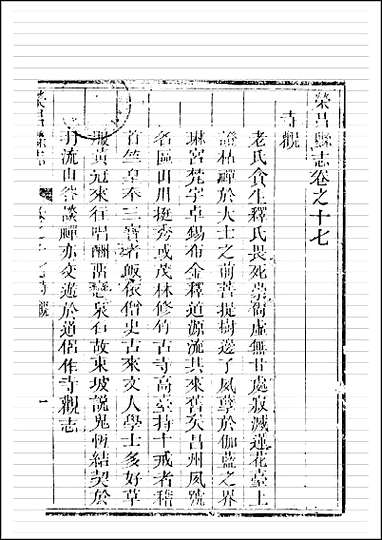 榮昌縣志卷之十七
寺觀
老氏貪生釋氏畏死崇尙虛無甘處寂滅蓮花臺上
證枯禪於大士之前菩提樹邊了夙孽於伽藍之界
琳宮梵宇卓錫布金釋道源流其來舊矣昌州夙號
名區山川挺秀或茂林修竹古寺高臺持十戒者稽
首竺皇奉三寶者皈依僧史古來文人學士多好草
服黃冠來往唱酬留戀泉石故東坡說鬼恆結契於
流山谷談禪亦交遊於道侶作寺觀志
榮昌縣志
卷之十七寺觀
一